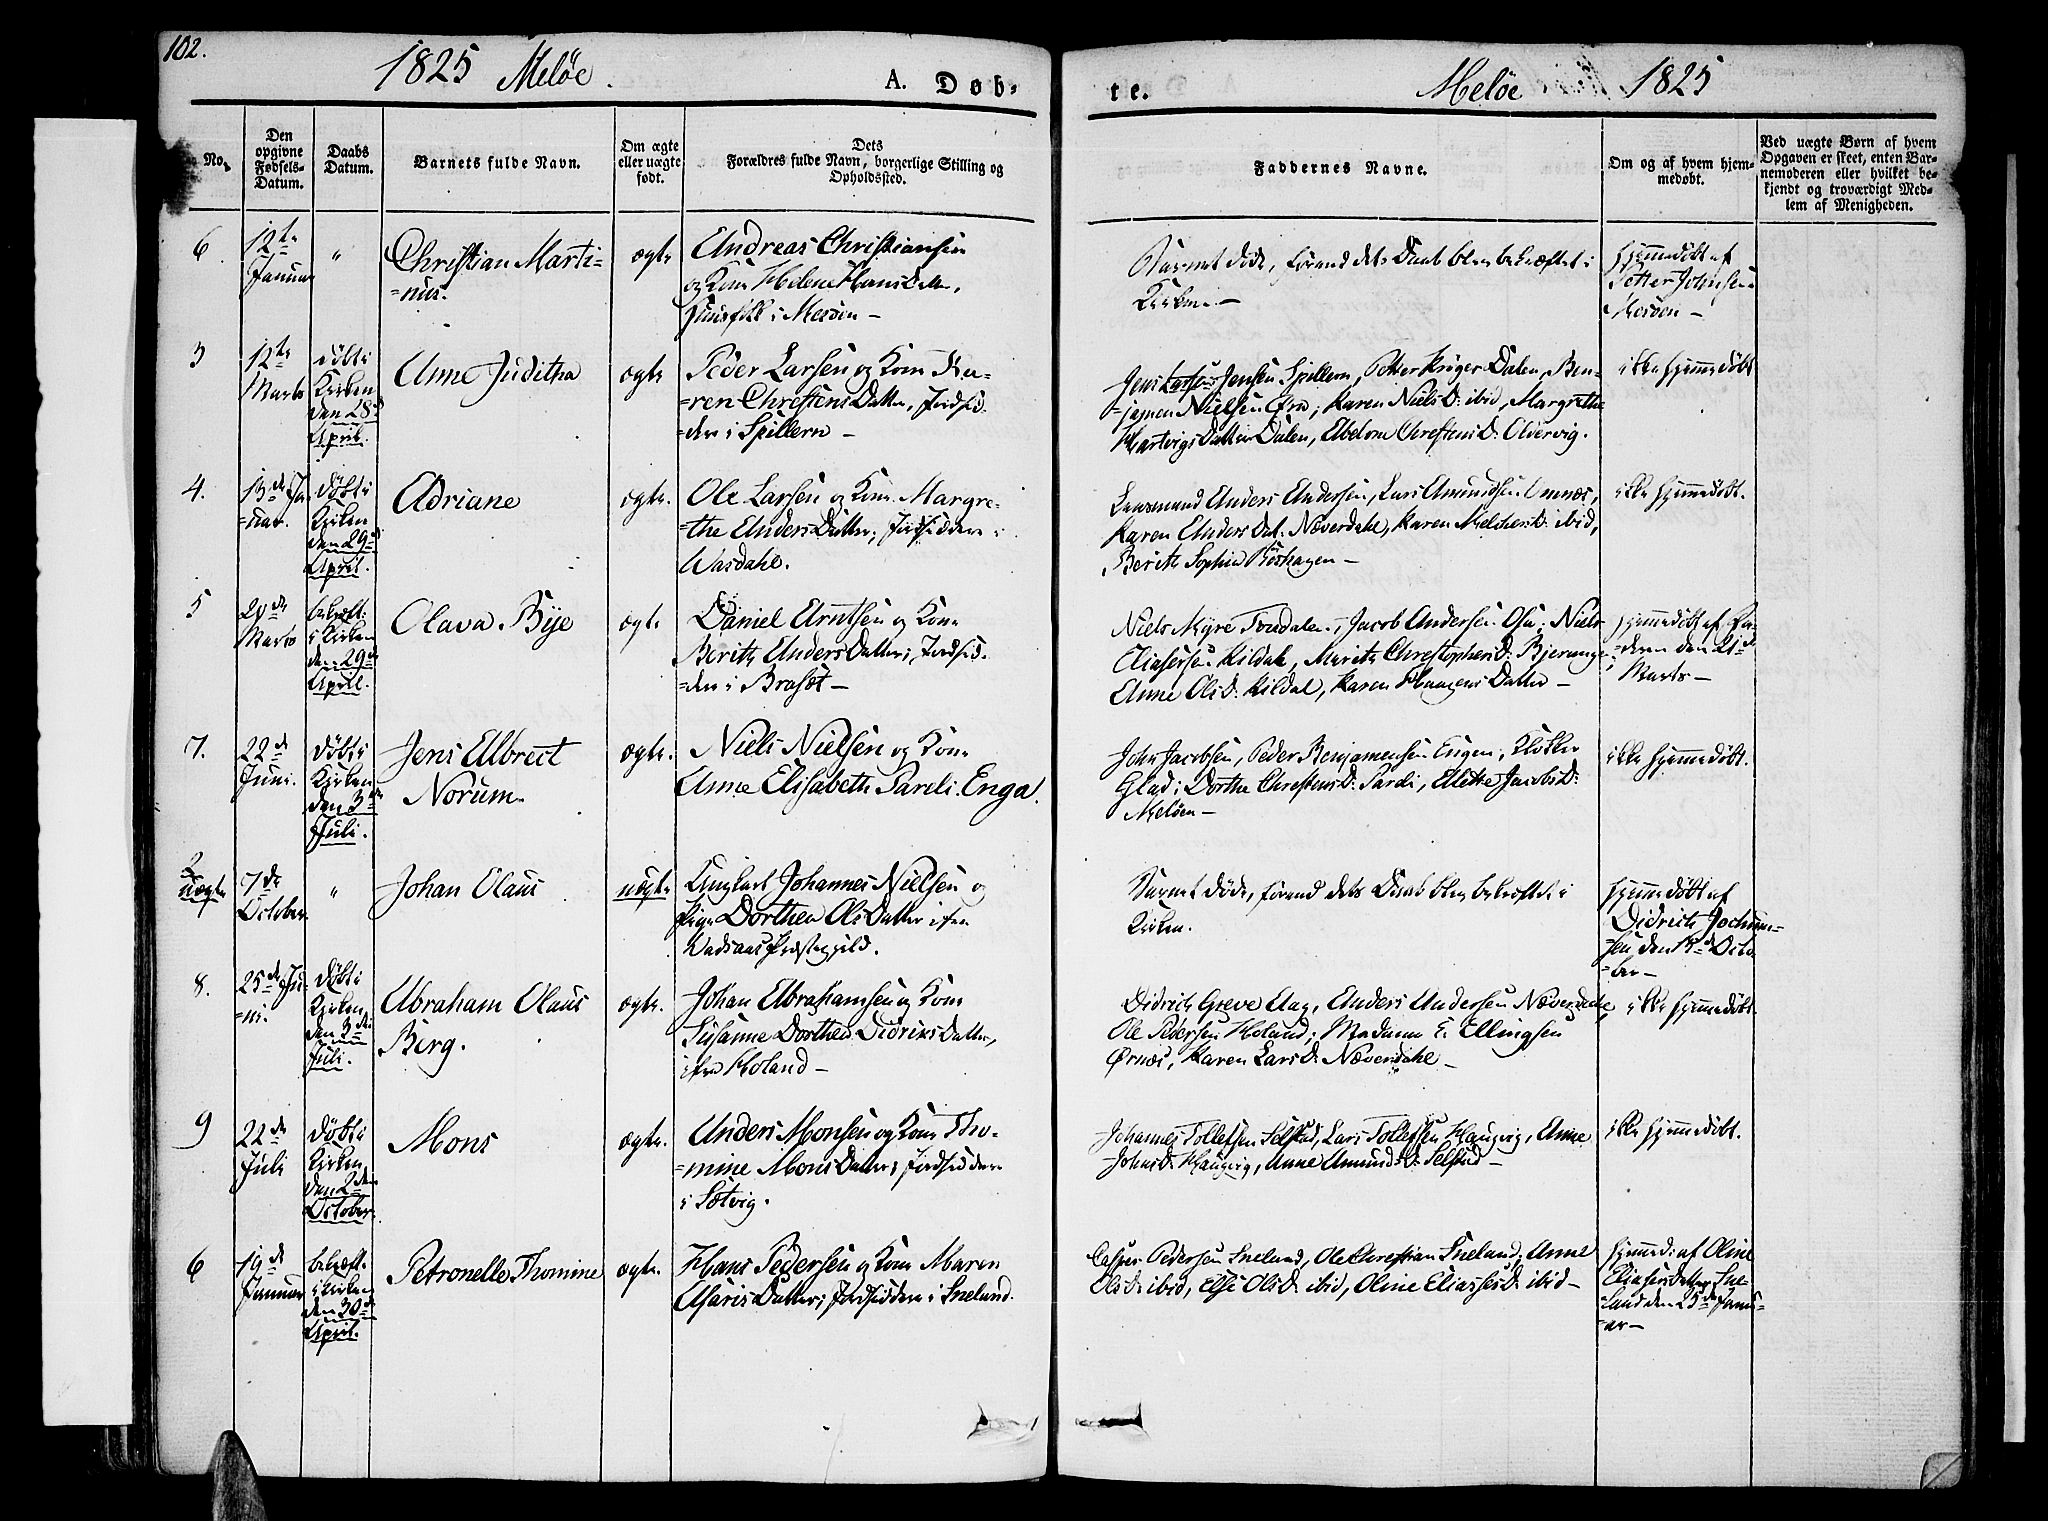 102.
1825 Meløe.
A. Døb-
te.
Meløe 1825
No.
Den
opgivne
Fødsels-
Datum.
Daabs
Datum.
Barnets fulde Navn.
Om ægte
eller uægte
født.
Dets
Forældres fulde Navn, borgerlige Stilling og
Opholdssted.
Faddernes Navne.
Om og af hvem hjem-
medøbt.
Ved uægte Børn af hvem
Opgaven er skeet, enten Bar-
nemoderen eller hvilket be-
kjendt og troværdigt Med-
lem af Menigheden.
6
12te
Januar
"
Christian Marti-
=nus.
ægte
Andreas Christiansen
og Kone Helene HansDatter,
Huusfolk i Mesøen —
Barnet døde, førend dets Daab blev bekræftet i
Kirken. —
hjemmedøbt af
Petter Johnsen
Mesøen —
3
12te
Marts
døbt i
Kirken
den 28de
April.
Anne Juditha
ægte
Peder Larsen og Kone Ka-
=ren ChrestensDatter, Jordsid-
=dere i Spillern —
Jens Jensen Spillern, Petter Krüger Dalen, Ben-
=jamen Nielsen Øra, Karen NielsD: ibid, Margrethe
HartvigsDatter Dalen, ChrestensD:
ikke hjemmedøbt
4.
13de Ja-
=nuar.
døbt i
Kirken
den 29de
April.
Adriane
ægte.
Ole Larsen og Kone Margre-
=the AndersDatter, Jordsiddere i
Wasdahl.
Lensmand Anders Andersen, Lars Amundsen
Karen Anders Dat: Næverdahl, Karen MelchersD: ibid,
Berith Sophia Røshagen —
ikke hjemmedøbt.
5
20de
Marts
bekræft:
i Kirken
den 29de
April.
Olava Bye
ægte
Daniel Arntsen og Kone
Berith AndersDatter, Jordsid-
=dere i Brasæt —
Niels Myre Jacob Andersen Niels
Eliasersen Kildal, Marith ChrestophersD: Bjerange
Anne OlsD: Kildal, Karen HaagensDatter —
hjemmedøbt af Fa-
=deren den 21de
Marts —
7.
22de
Juni.
døbt i
Kirken
den 3de
Juli.
Jens Albrect
Norum
ægte.
Niels Nielsen og Kone
Anne Elisabeth Pareli Enga.
John Jacobsen, Peder Benjamensen Engen, Klokker
Glad, Dorthe ChrestensD: Alethe JacobsD:
Meløen —
ikke hjemmedøbt.
2
uægte
7de
October
"
Johan Olaus
uægte
Ungkarl Johannes Nielsen og
Pige Dorthea OlsDatter ifra
Wadsøes Præstegjeld.
Barnet døde, førend dets Daab blev bekræftet i
Kirken.
hjemmedøbt af
Didrich Jochum-
=sen den 15de Octo-
=ber —
8.
25de Ju-
=ni.
døbt i
Kirken
den 3de
Juli.
Abraham Olaus
Berg.
ægte.
Johan Abrahamsen og Kone
Susanne Dorthea DidriksDatter,
ifra Holand —
Didrich Greve Aag, Anders Andersen Næverdahl,
Ole Pedersen Holand, Madame E. Ellingsen
Ørnæs, Karen LarsD: Næverdahl —
ikke hjemmedøbt.
9
22de
Juli
døbt i
Kirken
den 2den
October.
Mons
ægte.
Anders Monsen og Kone Tho-
=mine MonsDatter, Jordsiddere
i Sætvig.
Johannes Tollefsen Selstad, Lars Tollefsen Haugvig, Anne
JohnsD: Haugvig, Anne AmundsD: Selstad —
ikke hjemmedøbt.
6
19de
Januar
bekræft:
i Kirken
den 30de
April.
Petronelle Thomine
ægte.
Hans Pedersen og Kone Maren
AsarisDatter, Jordsiddere i Sneland.
Casper Pedersen Sneland, Ole Christian Sneland, Anne
OlsD: ibid, Else OlsD: ibid, Oline EliassersD: ibid —
hjemmed: af Oline
EliasersDatter Sne-
=land den 25de Janu-
=ar —